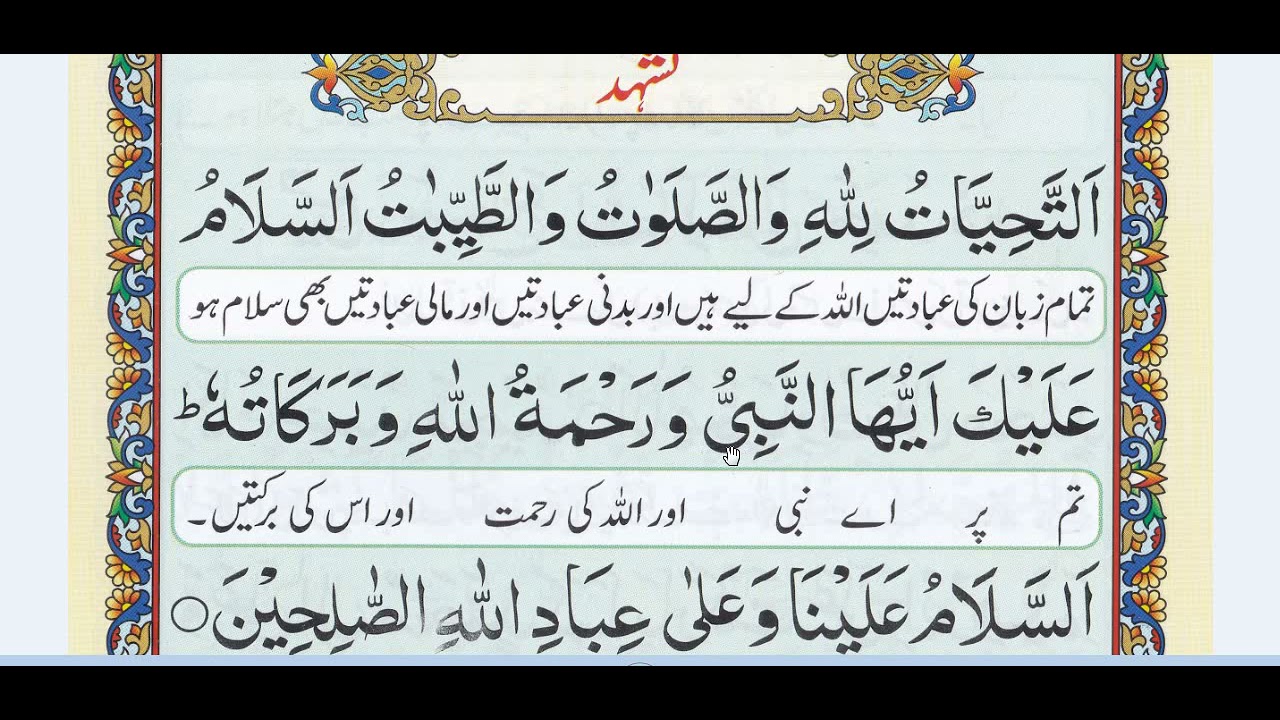 تشهد
اَلتَّحِيَّاتُ لِلّٰهِ وَالصَّلَوٰتُ وَالطَّيِّبٰتُ اَلسَّلَامُ
تمام زبان کی عبادتیں اللہ کے لیے ہیں اور بدنی عبادتیں اور مالی عبادتیں بھی سلام ہو
عَلَيْكَ اَيُّهَا النَّبِيُّ وَرَحْمَةُ اللّٰهِ وَبَرَكَاتُهٗ ؕ
تم پر اے نبی اور اللہ کی رحمت اور اس کی برکتیں۔
اَلسَّلَامُ عَلَيْنَا وَعَلٰى عِبَادِ اللّٰهِ الصّٰلِحِيْنَ ○